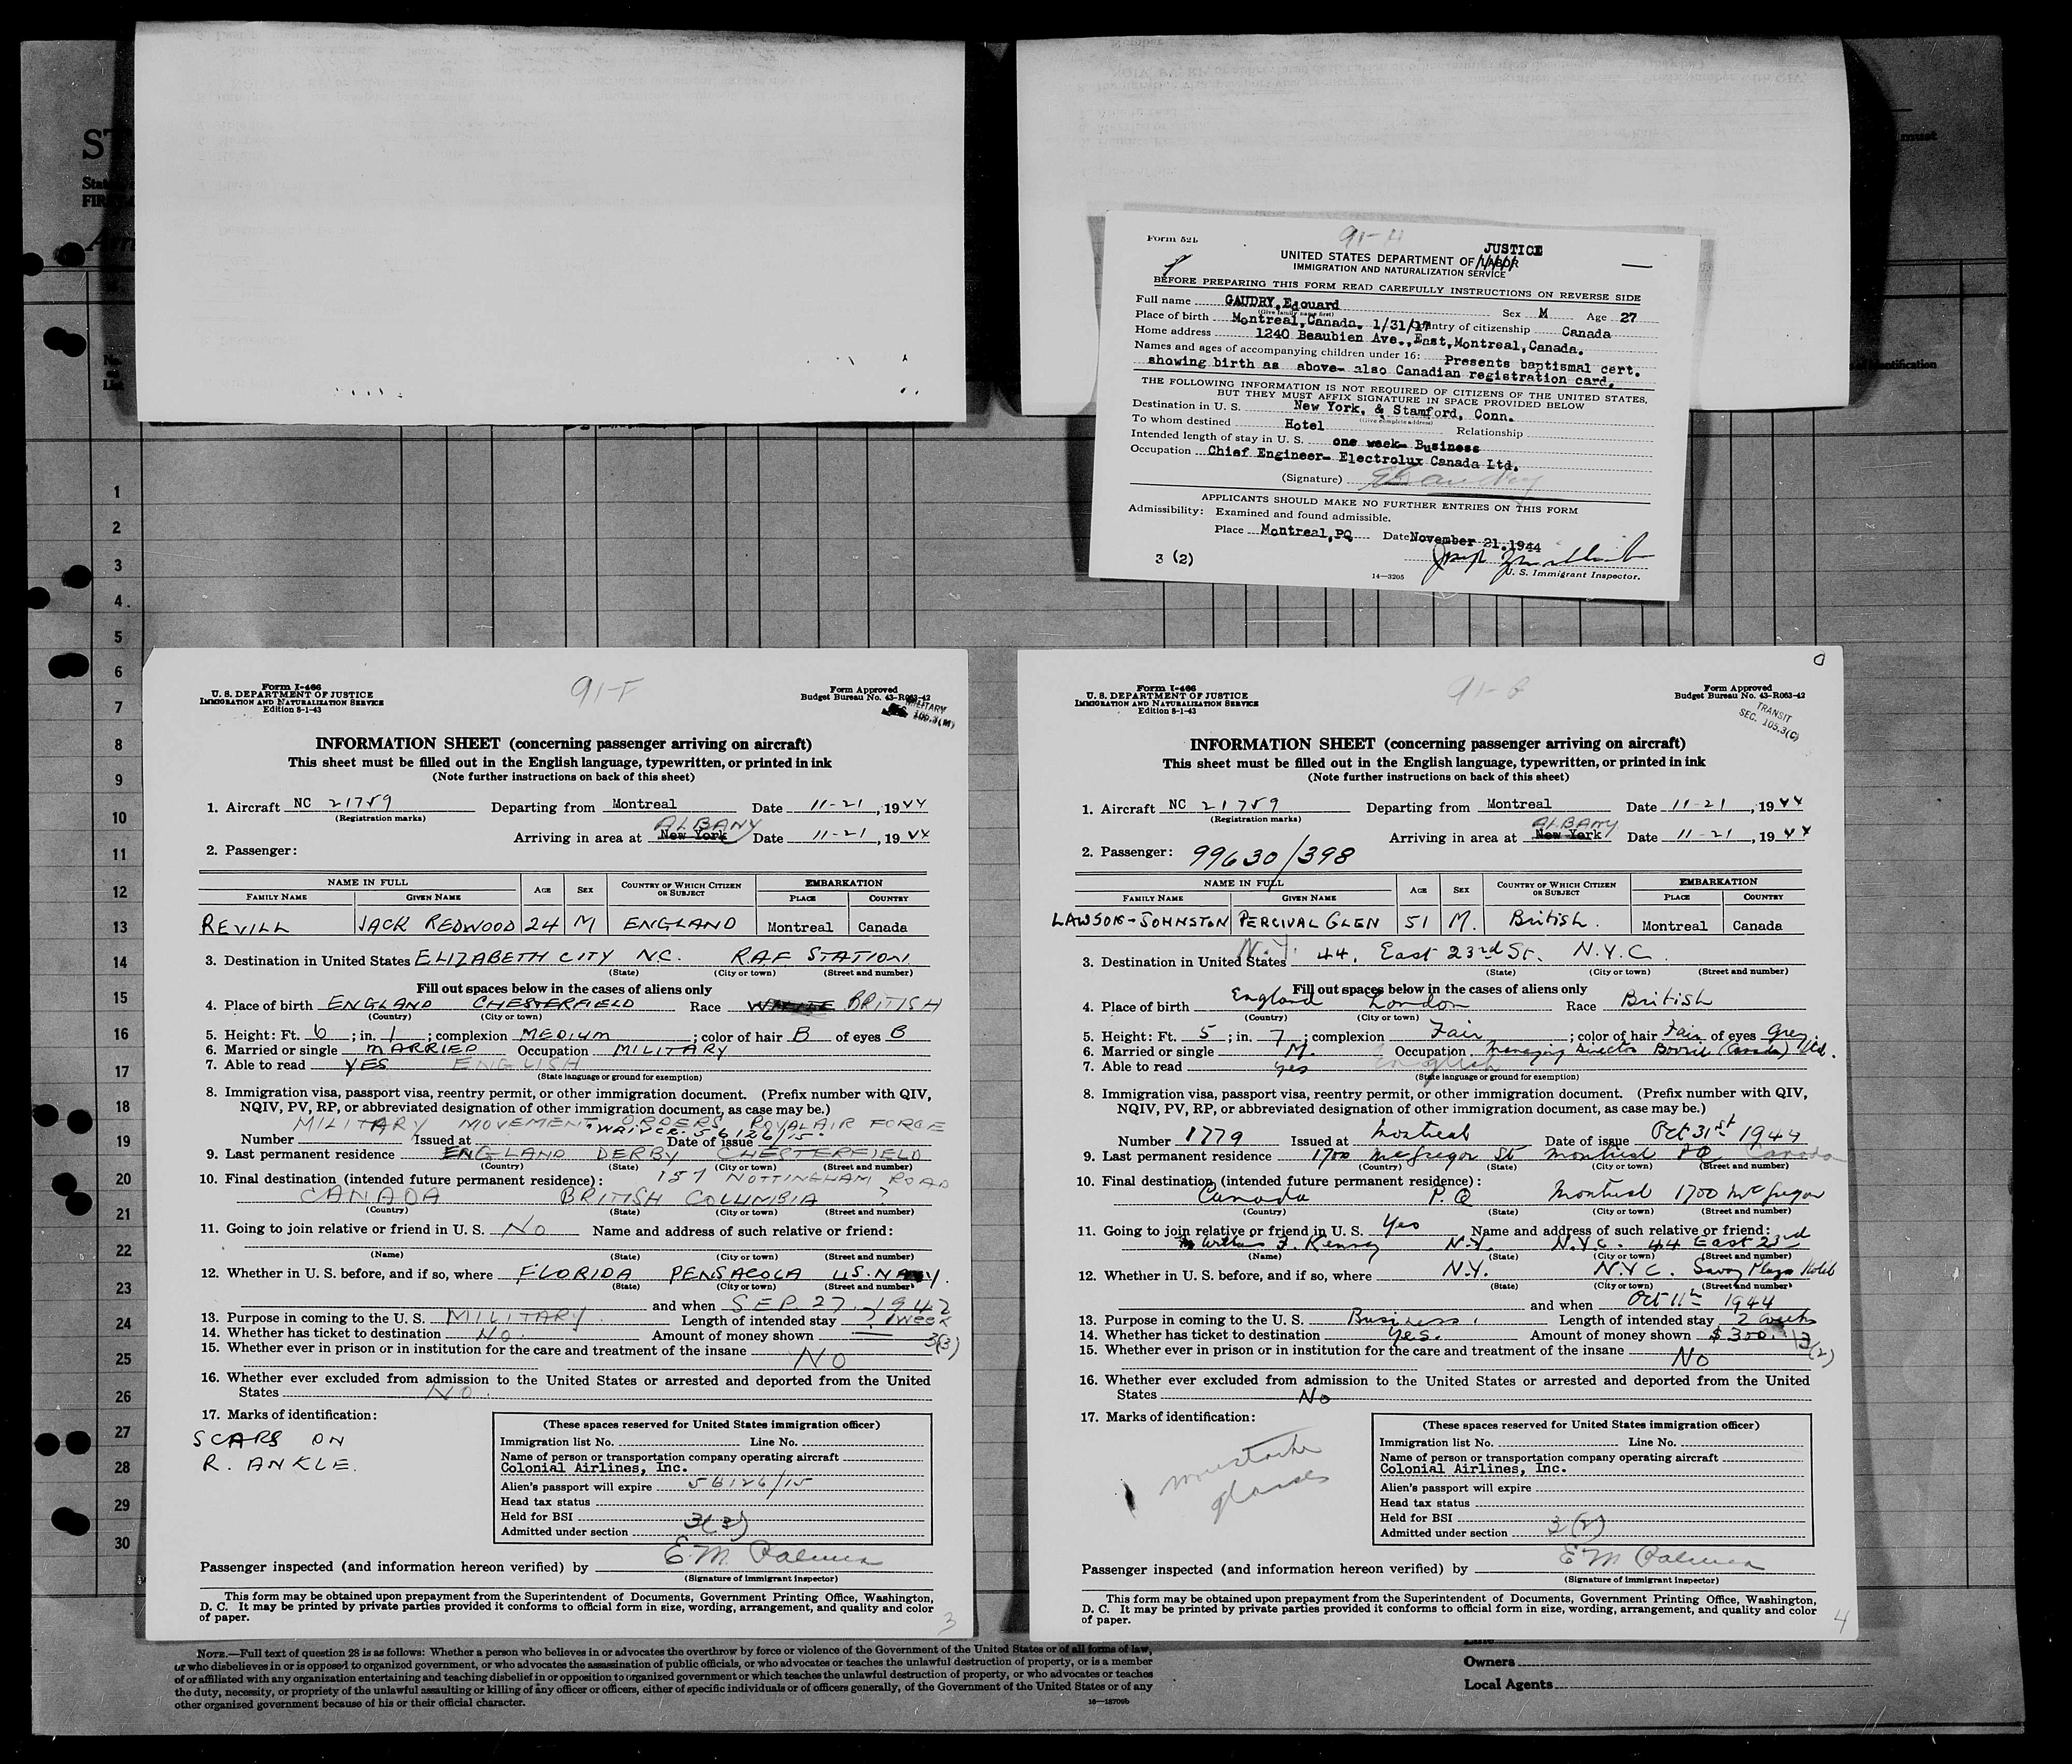 91-H
Form 521
JUSTICE
UNITED STATES DEPARTMENT OF LABOR
IMMIGRATION AND NATURALIZATION SERVICE
BEFORE PREPARING THIS FORM READ CAREFULLY INSTRUCTIONS ON REVERSE SIDE
Full name GAUDRY, Edouard Sex M Age 27
(Give family name first)
Place of birth Montreal, Canada. 1/31/17 Country of citizenship Canada
Home address 1240 Beaubien Ave., East, Montreal, Canada.
Names and ages of accompanying children under 16: Presents baptismal cert.
showing birth as above- also Canadian registration card.
THE FOLLOWING INFORMATION IS NOT REQUIRED OF CITIZENS OF THE UNITED STATES,
BUT THEY MUST AFFIX SIGNATURE IN SPACE PROVIDED BELOW
Destination in U. S. New York, & Stamford, Conn.
(Give complete address)
To whom destined Hotel Relationship
Intended length of stay in U. S. one week- Business
Occupation Chief Engineer- Electrolux Canada Ltd.
(Signature) E Gaudry
APPLICANTS SHOULD MAKE NO FURTHER ENTRIES ON THIS FORM
Admissibility: Examined and found admissible.
Place Montreal, PQ Date November 21, 1944
3 (2)
14—3205
U. S. Immigrant Inspector.
Form I-466
U. S. DEPARTMENT OF JUSTICE
IMMIGRATION AND NATURALIZATION SERVICE
Edition 8-1-43
91-F
Form Approved
Budget Bureau No. 43-R063-42
MILITARY
SEC. 105.3(M)
INFORMATION SHEET (concerning passenger arriving on aircraft)
This sheet must be filled out in the English language, typewritten, or printed in ink
(Note further instructions on back of this sheet)
1. Aircraft NC 21759 Departing from Montreal Date 11-21, 1944
(Registration marks)
ALBANY
Arriving in area at New York Date 11-21, 1944
2. Passenger:
NAME IN FULL AGE SEX COUNTRY OF WHICH CITIZEN OR SUBJECT EMBARKATION
FAMILY NAME GIVEN NAME PLACE COUNTRY
REVILL JACK REDWOOD 24 M ENGLAND Montreal Canada
3. Destination in United States ELIZABETH CITY N.C. R.A.F. STATION
(State) (City or town) (Street and number)
Fill out spaces below in the cases of aliens only
4. Place of birth ENGLAND CHESTERFIELD Race WHITE BRITISH
(Country) (City or town)
5. Height: Ft. 6; in. 1; complexion MEDIUM; color of hair B of eyes B
6. Married or single MARRIED Occupation MILITARY
7. Able to read YES ENGLISH
(State language or ground for exemption)
8. Immigration visa, passport visa, reentry permit, or other immigration document. (Prefix number with QIV,
NQIV, PV, RP, or abbreviated designation of other immigration document, as case may be.)
MILITARY MOVEMENT ORDERS ROYAL AIR FORCE
WAIVER. 56126/15
Number Issued at Date of issue
9. Last permanent residence ENGLAND DERBY CHESTERFIELD
(Country) (State) (City or town) (Street and number)
10. Final destination (intended future permanent residence): 157 NOTTINGHAM ROAD
CANADA BRITISH COLUMBIA ?
(Country) (State) (City or town) (Street and number)
11. Going to join relative or friend in U. S. NO Name and address of such relative or friend:
(Name) (State) (City or town) (Street and number)
12. Whether in U. S. before, and if so, where FLORIDA PENSACOLA U.S. NAVY.
(State) (City or town) (Street and number)
and when SEP. 27. 1942
13. Purpose in coming to the U. S. MILITARY Length of intended stay ? 1 week
14. Whether has ticket to destination NO. Amount of money shown
3(3)
15. Whether ever in prison or in institution for the care and treatment of the insane NO
16. Whether ever excluded from admission to the United States or arrested and deported from the United
States NO.
17. Marks of identification:
SCARS ON
R. ANKLE.
(These spaces reserved for United States immigration officer)
Immigration list No. Line No.
Name of person or transportation company operating aircraft
Colonial Airlines, Inc.
Alien's passport will expire 56126/15
Head tax status
Held for BSI
Admitted under section 3(3)
Passenger inspected (and information hereon verified) by E M Palmer
(Signature of immigrant inspector)
This form may be obtained upon prepayment from the Superintendent of Documents, Government Printing Office, Washington,
D. C. It may be printed by private parties provided it conforms to official form in size, wording, arrangement, and quality and color
of paper.
3
Form I-466
U. S. DEPARTMENT OF JUSTICE
IMMIGRATION AND NATURALIZATION SERVICE
Edition 8-1-43
91-G
Form Approved
Budget Bureau No. 43-R063-42
TRANSIT
SEC. 105.3(C)
INFORMATION SHEET (concerning passenger arriving on aircraft)
This sheet must be filled out in the English language, typewritten, or printed in ink
(Note further instructions on back of this sheet)
1. Aircraft NC 21759 Departing from Montreal Date 11-21, 1944
(Registration marks)
ALBANY
Arriving in area at New York Date 11-21, 1944
2. Passenger: 99630/398
NAME IN FULL AGE SEX COUNTRY OF WHICH CITIZEN OR SUBJECT EMBARKATION
FAMILY NAME GIVEN NAME PLACE COUNTRY
LAWSON-JOHNSTON PERCIVAL GLEN 51 M. British. Montreal Canada
3. Destination in United States N.Y. 44, East 23rd St. N.Y.C.
(State) (City or town) (Street and number)
Fill out spaces below in the cases of aliens only
4. Place of birth England London Race British
(Country) (City or town)
5. Height: Ft. 5; in. 7; complexion Fair; color of hair Fair of eyes Grey
6. Married or single M. Occupation Managing Director Bovril (Canada) Ltd.
7. Able to read yes English
(State language or ground for exemption)
8. Immigration visa, passport visa, reentry permit, or other immigration document. (Prefix number with QIV,
NQIV, PV, RP, or abbreviated designation of other immigration document, as case may be.)
Number 1779 Issued at Montreal Date of issue Oct 31st 1944
9. Last permanent residence 1700 McGregor St Montreal PQ Canada
(Country) (State) (City or town) (Street and number)
10. Final destination (intended future permanent residence):
Canada P.Q Montreal 1700 McGregor
(Country) (State) (City or town) (Street and number)
11. Going to join relative or friend in U. S. Yes Name and address of such relative or friend:
N.Y. N.Y.C. 44 East 23rd
(Name) (State) (City or town) (Street and number)
12. Whether in U. S. before, and if so, where N.Y. N.Y.C. Savoy Plaza Hotel
(State) (City or town) (Street and number)
and when Oct 11th 1944
13. Purpose in coming to the U. S. Business. Length of intended stay 2 weeks
14. Whether has ticket to destination Yes. Amount of money shown $300.
3(2)
15. Whether ever in prison or in institution for the care and treatment of the insane No
16. Whether ever excluded from admission to the United States or arrested and deported from the United
States No
17. Marks of identification:
moustache
glasses
(These spaces reserved for United States immigration officer)
Immigration list No. Line No.
Name of person or transportation company operating aircraft
Colonial Airlines, Inc.
Alien's passport will expire
Head tax status
Held for BSI
Admitted under section 3(2)
Passenger inspected (and information hereon verified) by E M Palmer
(Signature of immigrant inspector)
This form may be obtained upon prepayment from the Superintendent of Documents, Government Printing Office, Washington,
D. C. It may be printed by private parties provided it conforms to official form in size, wording, arrangement, and quality and color
of paper.
4
must
1
2
3
4
5
6
7
8
9
10
11
12
13
14
15
16
17
18
19
20
21
22
23
24
25
26
27
28
29
30
NOTE.—Full text of question 28 is as follows: Whether a person who believes in or advocates the overthrow by force or violence of the Government of the United States or of all forms of law,
or who disbelieves in or is opposed to organized government, or who advocates the assassination of public officials, or who advocates or teaches the unlawful destruction of property, or is a member
of or affiliated with any organization entertaining and teaching disbelief in or opposition to organized government or which teaches the unlawful destruction of property, or who advocates or teaches
the duty, necessity, or propriety of the unlawful assaulting or killing of any officer or officers, either of specific individuals or of officers generally, of the Government of the United States or of any
other organized government because of his or their official character.
16—18709b
Owners
Local Agents